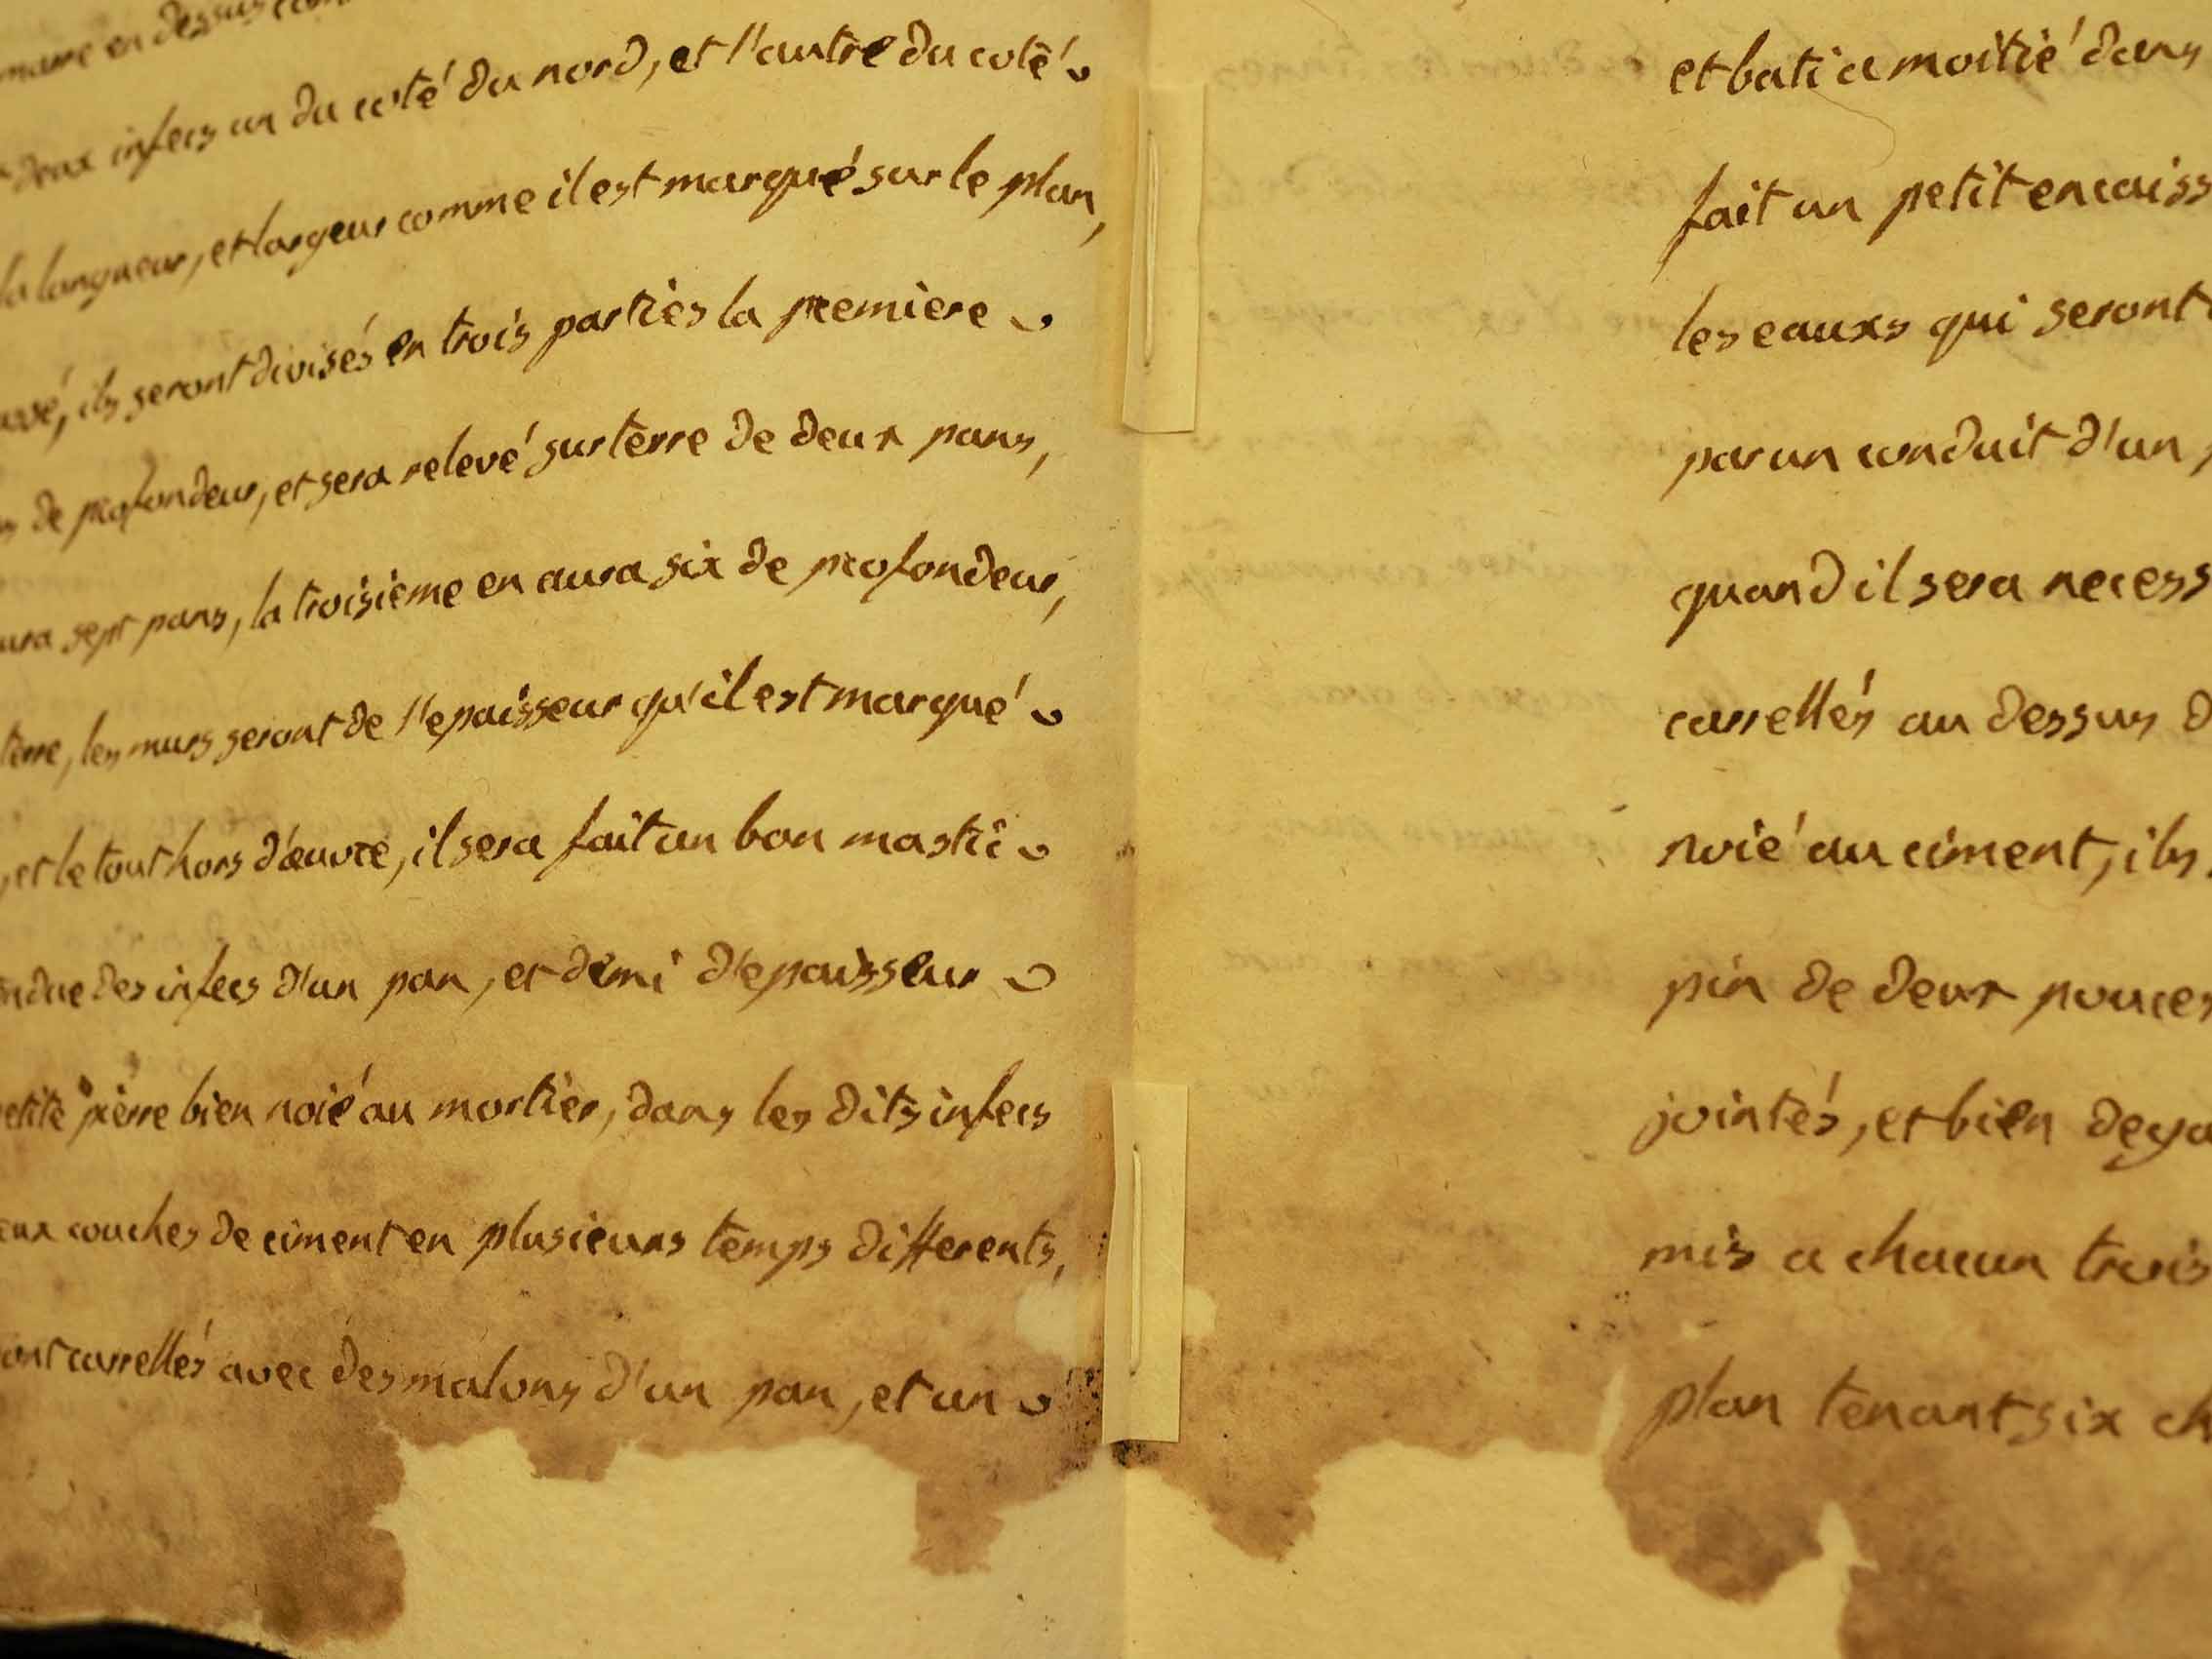 en dessus
deux infers un du coté du nord, et l'autre du coté
la longueur, et largeur comme il est marqué sur le plan,
ils seront divisés en trois parties la premiere
de profondeur, et sera relevé sur terre de deux pans,
aura sept pans, la troisieme en aura six de profondeur,
terre, les murs seront de l'epaisseur qu'il est marqué
, et le tout hors d'œuvre, il sera fait un bon mastic
des infers d'un pan, et demi d'epaisseur
etite pierre bien noié au mortier, dans les dits infers
eux couches de ciment en plusieurs temps differents,
ont carrellés avec des malons d'un pan, et un
et bati a moitié dans
fait un petit encaiss
les eauxs qui seront
par un conduit d'un
quand il sera necess
carrellés au dessus d
noié au ciment, ils
pin de deux pouces
jointés, et bien dega
mis a chacun trois
plan tenant six ch